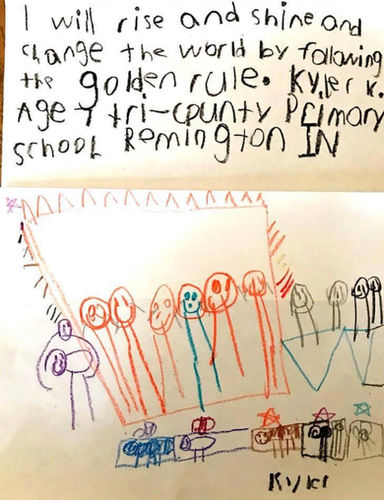 I will rise and shine and
change the world by following
the golden rule. Kyler K.
Age 7 tri-county Primary
school Remington IN
Kyler